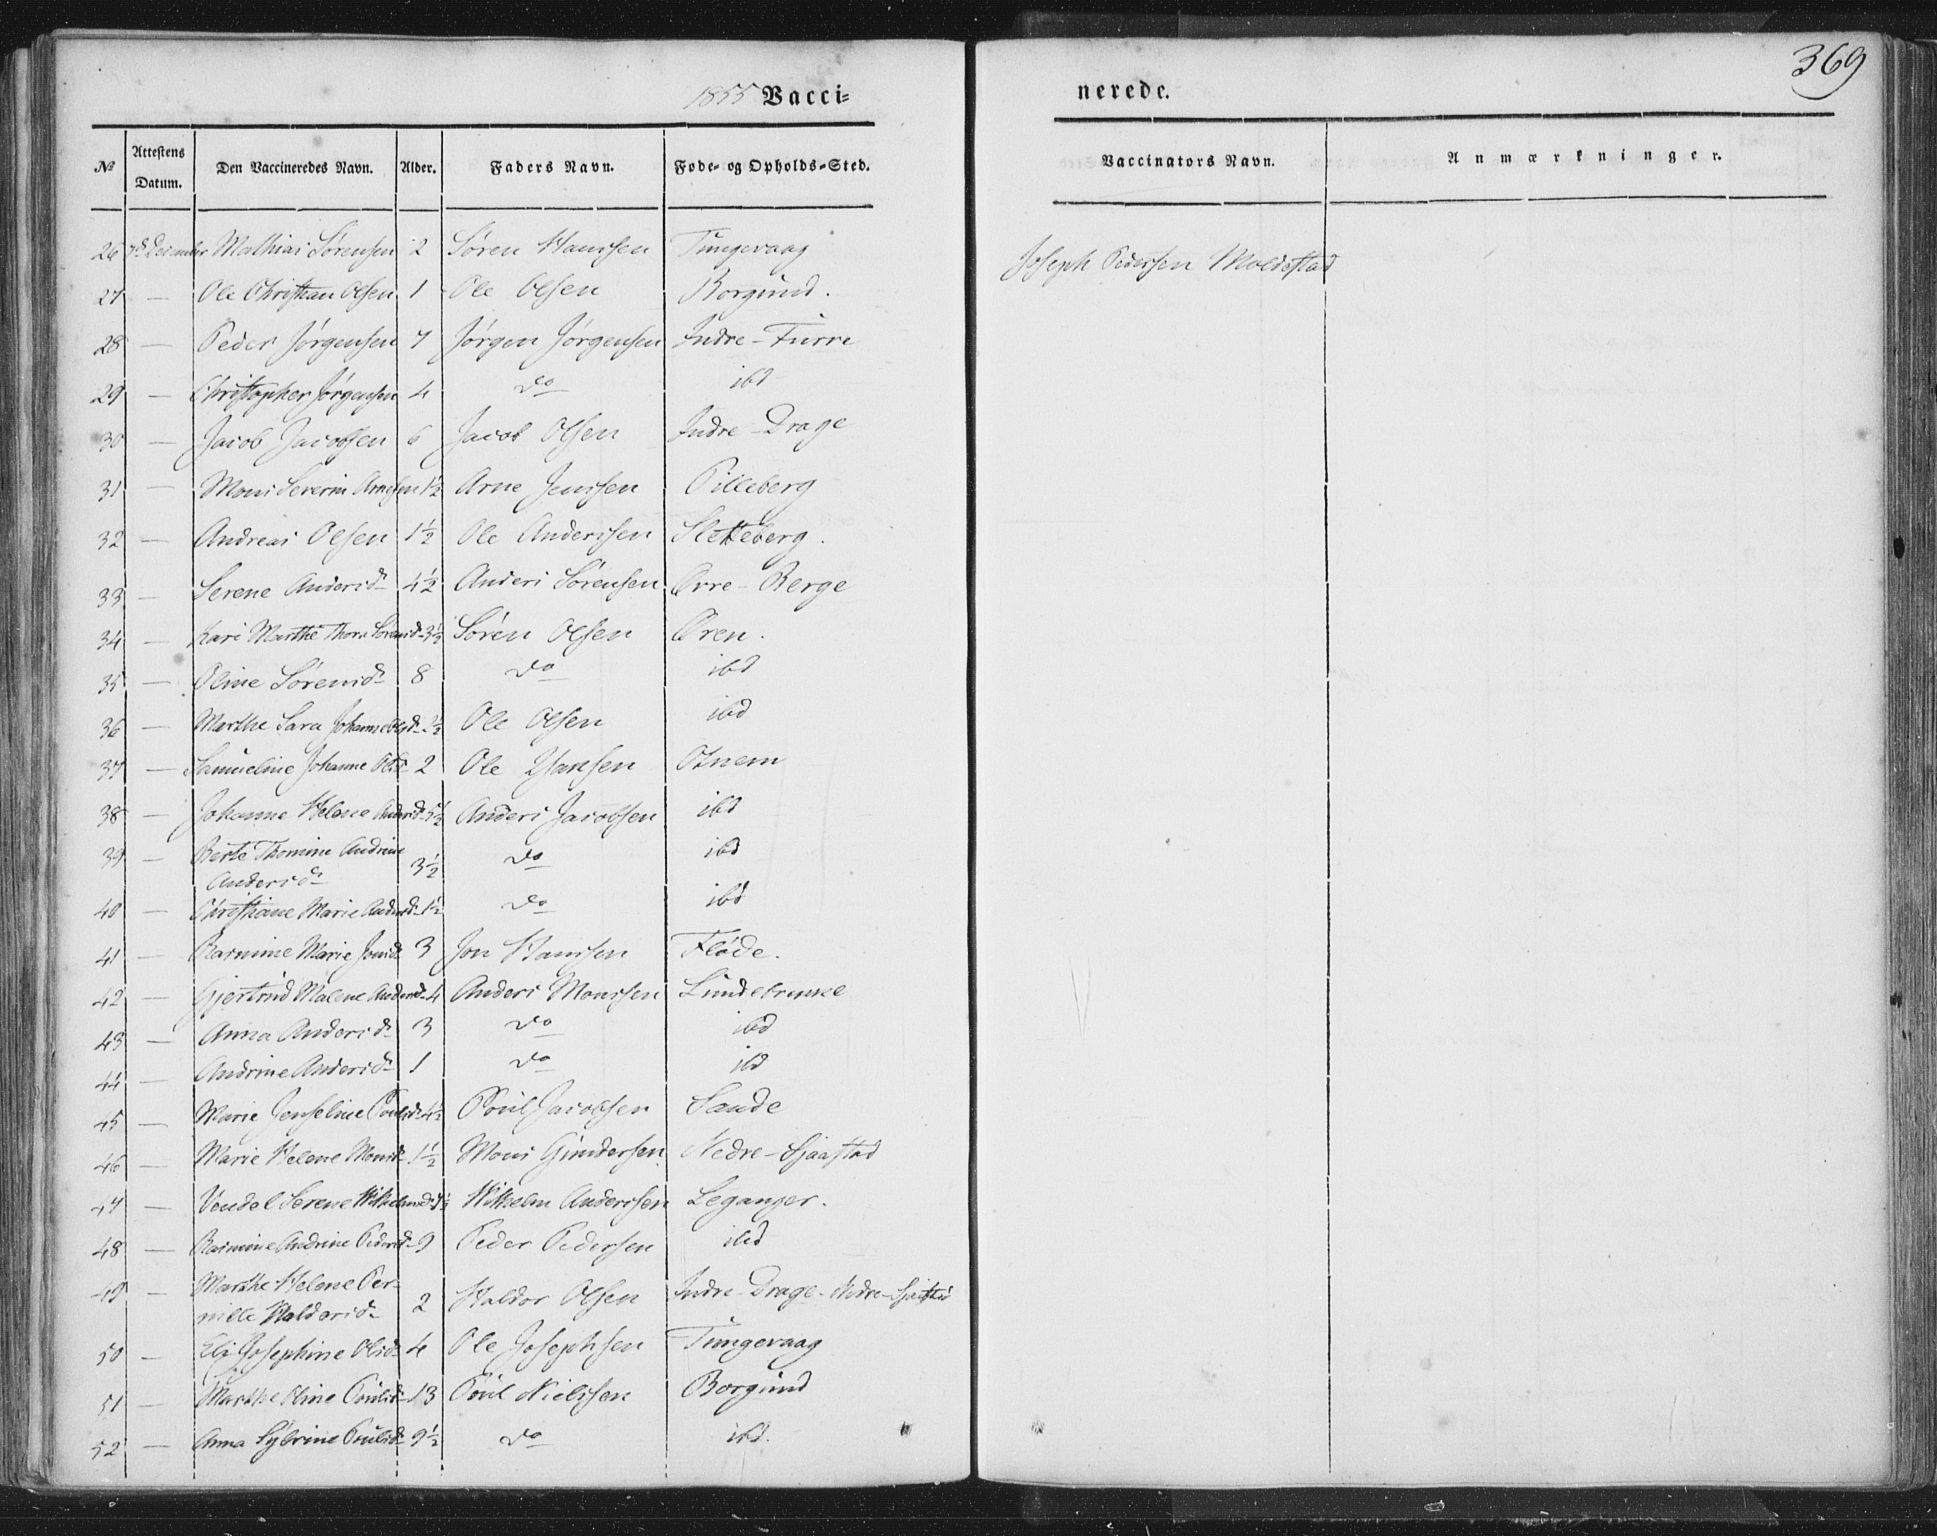 369
1855 Vacci=
nerede.
№ Attestens Datum. Den Vaccineredes Navn. Alder. Faders Navn. Føde- og Opholds-Sted.
Vaccinators Navn. Anmærkninger.
26 7de December Mathias Sørensen 2 Søren Hanssen Tungevaag Joseph Pedersen Moldestad
27 — Ole Christian Olsen 1 Ole Olsen Borgund.
28 — Peder Jørgensen 7 Jørgen Jørgensen Indre-Furre
29 — Christopher Jørgensen 4 do ibd
30 — Jacob Jacobsen 6 Jacob Olsen Indre-Drage
31 — Mons Severin Arnesen 1½ Arne Jenssen Pilleberg
32 — Andreas Olsen 1½ Ole Anderssen Sletteberg.
33 — Serene Andersd 4½ Anders Sørensen Øvre-Berge
34 — Kari Marthe Thora Sørensd 3½ Søren Olsen Øren.
35 — Oline Sørensd 8 do ibd
36 — Marthe Sara Johanne Olsd 2½ Ole Olsen ibd
37 — Samueline Johanne Olsd 2 Ole Hansen Otnem
38 — Johanne Helene Andersd 5½ Anders Jacobsen ibd
39 — Berte Thomine Andrine
Andersd 3½ do ibd
40 — Christiane Marie Andersd 1½ do ibd
41 — Rasmine Marie Jonsd 3 Jon Hanssen Fløde.
42 — Gjertrud Malene Andersd 4 Anders Monssen Lundebrekke
43 — Anna Andersd 3 do ibd
44 — Andrine Andersd 1 do ibd
45 — Marie Jenseline Poulsd 4½ Poul Jacobsen Sande
46 — Marie Helene Monsd 1½ Mons Gundersen Nedre-Sjaastad
47 — Vendel Serene Wilhelmsd Wilhelm Anderssen Leganger.
48 — Rasmine Andrine Pedersd 9 Peder Pedersen ibd
49 — Marthe Helene Per-
nille Haldorsd 2 Haldor Olsen Indre-Drage-Nedre-Sjaastad
50 — Eli Josephine Olsd 4 Ole Josephsen Tungevaag
51 — Marthe Oline Poulsd 13 Poul Nielssen Borgund
52 — Anna Sybrine Poulsd 9½ do ibd.